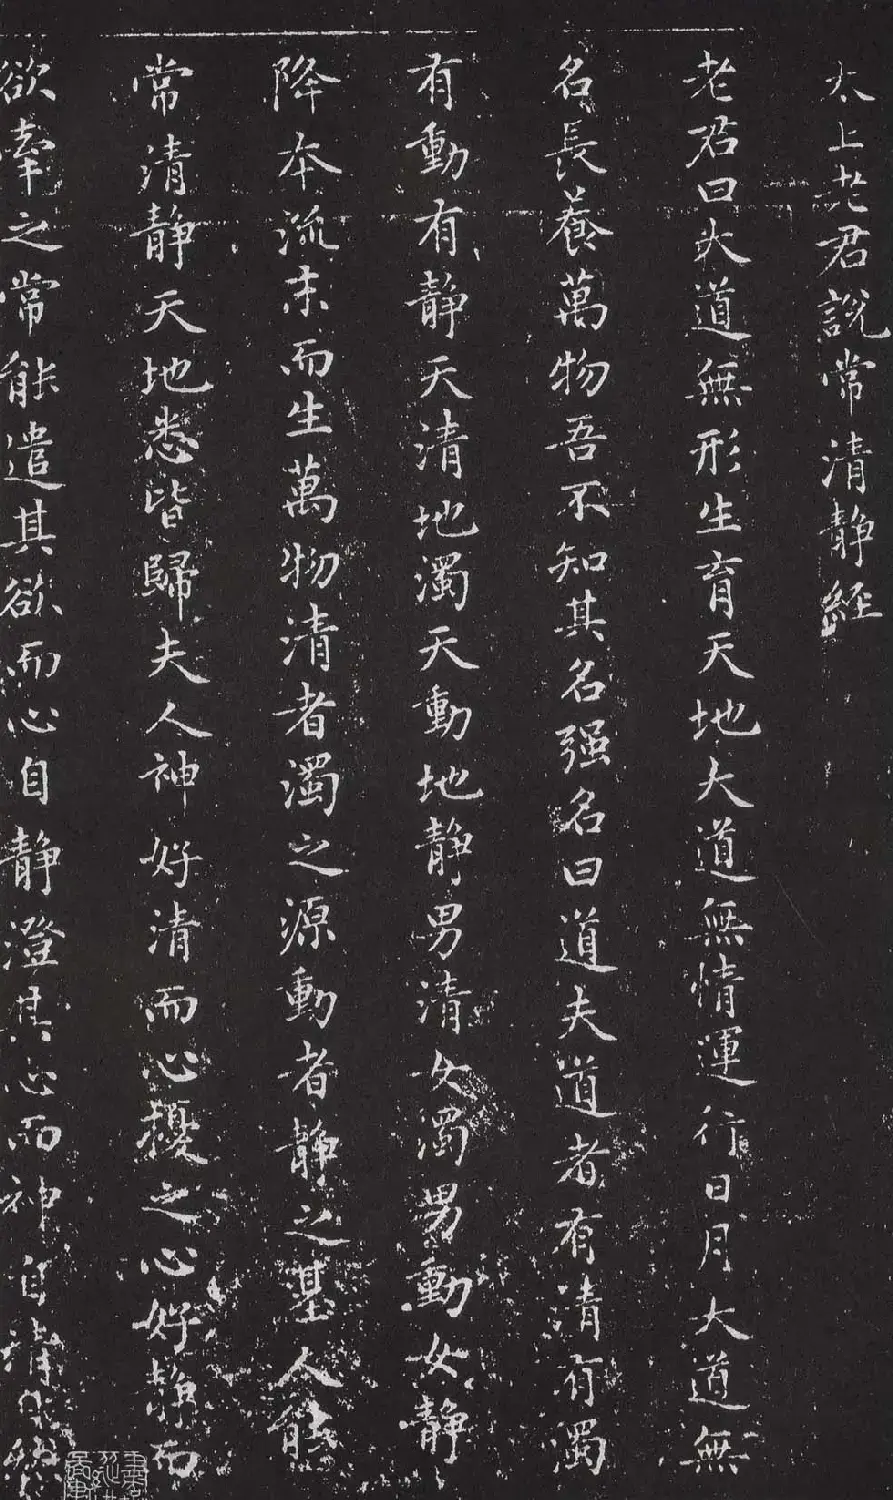 太上老君說常清靜經
老君曰大道無形生育天地大道無情運行日月大道無
名長養萬物吾不知其名强名曰道夫道者有清有濁
有動有静天清地濁天動地静男清女濁男動女静
降本流末而生萬物清者濁之源動者静之基人能
常清静天地悉皆歸夫人神好清而心擾之心好静而
欲牽之常能遣其欲而心自静澄其心而神自清